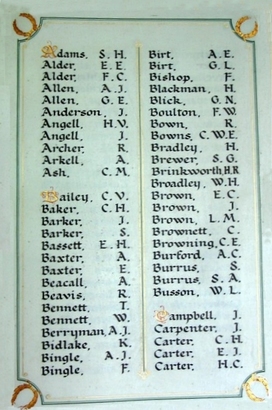 Adams, S. H.
Alder, E. E.
Alder, F. C.
Allen, A. J.
Allen, G. E.
Anderson, J.
Angell, H. V.
Angell, J.
Archer, R.
Arkell, A.
Ash, C. M.
Bailey, C. V.
Baker, C. H.
Barker, J.
Barker, S.
Bassett, E. H.
Baxter, A.
Baxter, E.
Beacall, A.
Beavis, R.
Bennett, T.
Bennett, W.
Berryman, A. J.
Bidlake, K.
Bingle, A. J.
Bingle, F.
Birt, A. E.
Birt, G. L.
Bishop, F.
Blackman, H.
Blick, G. N.
Boulton, F. W.
Bown, R.
Bowns, C. W. E.
Bradley, H.
Brewer, S. G.
Brinkworth, H. R
Broadley, W. H.
Brown, E. C.
Brown, J.
Brown, L. M.
Brownett, C.
Browning, C. E.
Burford, A. C.
Burrus, S.
Burrus, S. A.
Busson, W. L.
Campbell, J.
Carpenter, J.
Carter, C. H.
Carter, E. J.
Carter, H. C.